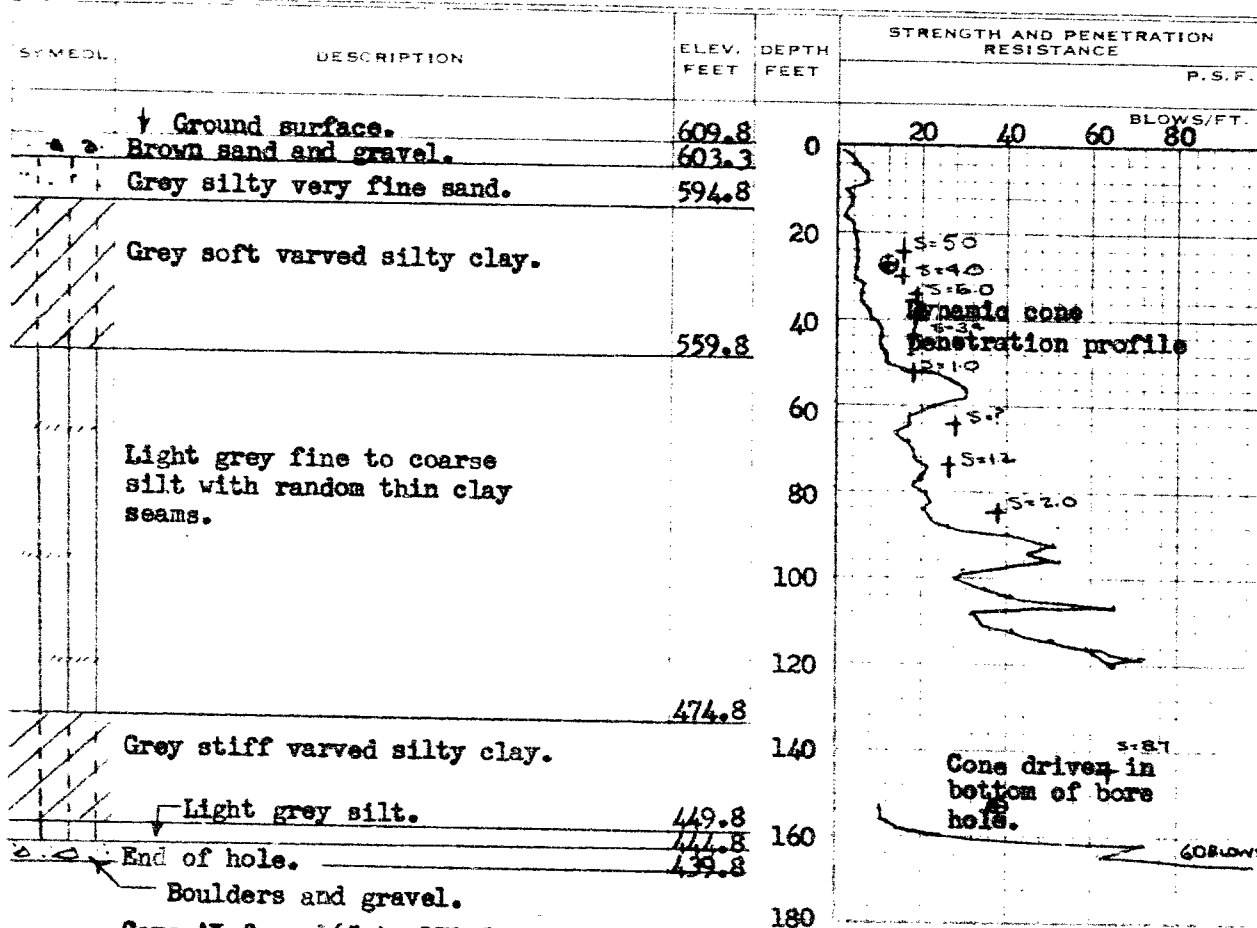 SYMBOL
DESCRIPTION
ELEV. FEET
DEPTH FEET
STRENGTH AND PENETRATION RESISTANCE
P.S.F.
BLOWS/FT.
20 40 60 80
Ground surface. 609.8
Brown sand and gravel. 603.3
Grey silty very fine sand. 594.8
Grey soft varved silty clay.
559.8
Light grey fine to coarse
silt with random thin clay
seams.
474.8
Grey stiff varved silty clay.
Light grey silt. 449.8
444.8
End of hole. 439.8
Boulders and gravel.
0
20
40
60
80
100
120
140
160
180
S=5.0
S=4.0
S=6.0
Dynamic cone
penetration profile
S=1.0
S=1.2
S=2.0
S=8.7
Cone driven in
bottom of bore
hole.
60 BLOWS